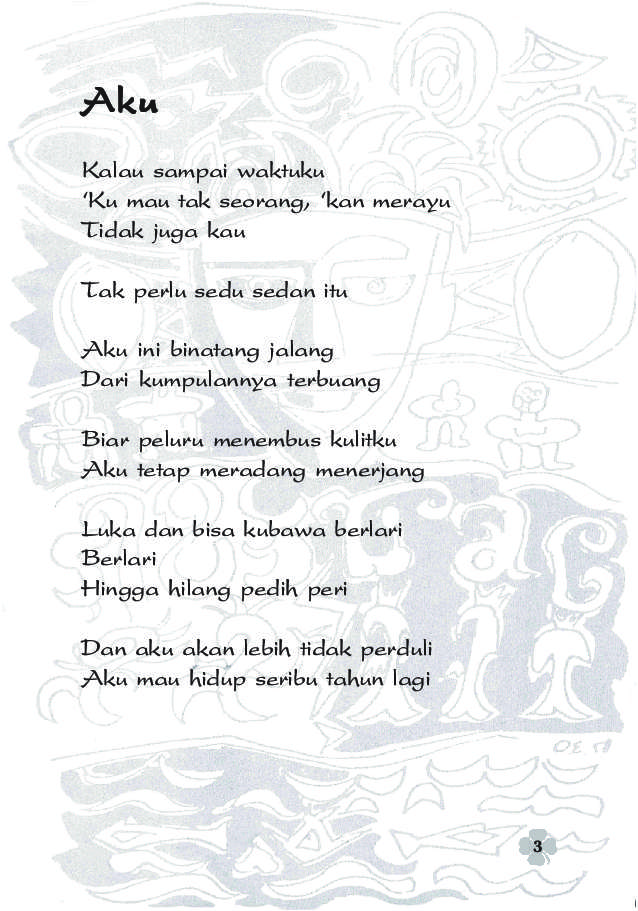 Aku
Kalau sampai waktuku
‘Ku mau tak seorang, ‘kan merayu
Tidak juga kau
Tak perlu sedu sedan itu
Aku ini binatang jalang
Dari kumpulannya terbuang
Biar peluru menembus kulitku
Aku tetap meradang menerjang
Luka dan bisa kubawa berlari
Berlari
Hingga hilang pedih peri
Dan aku akan lebih tidak perduli
Aku mau hidup seribu tahun lagi
3